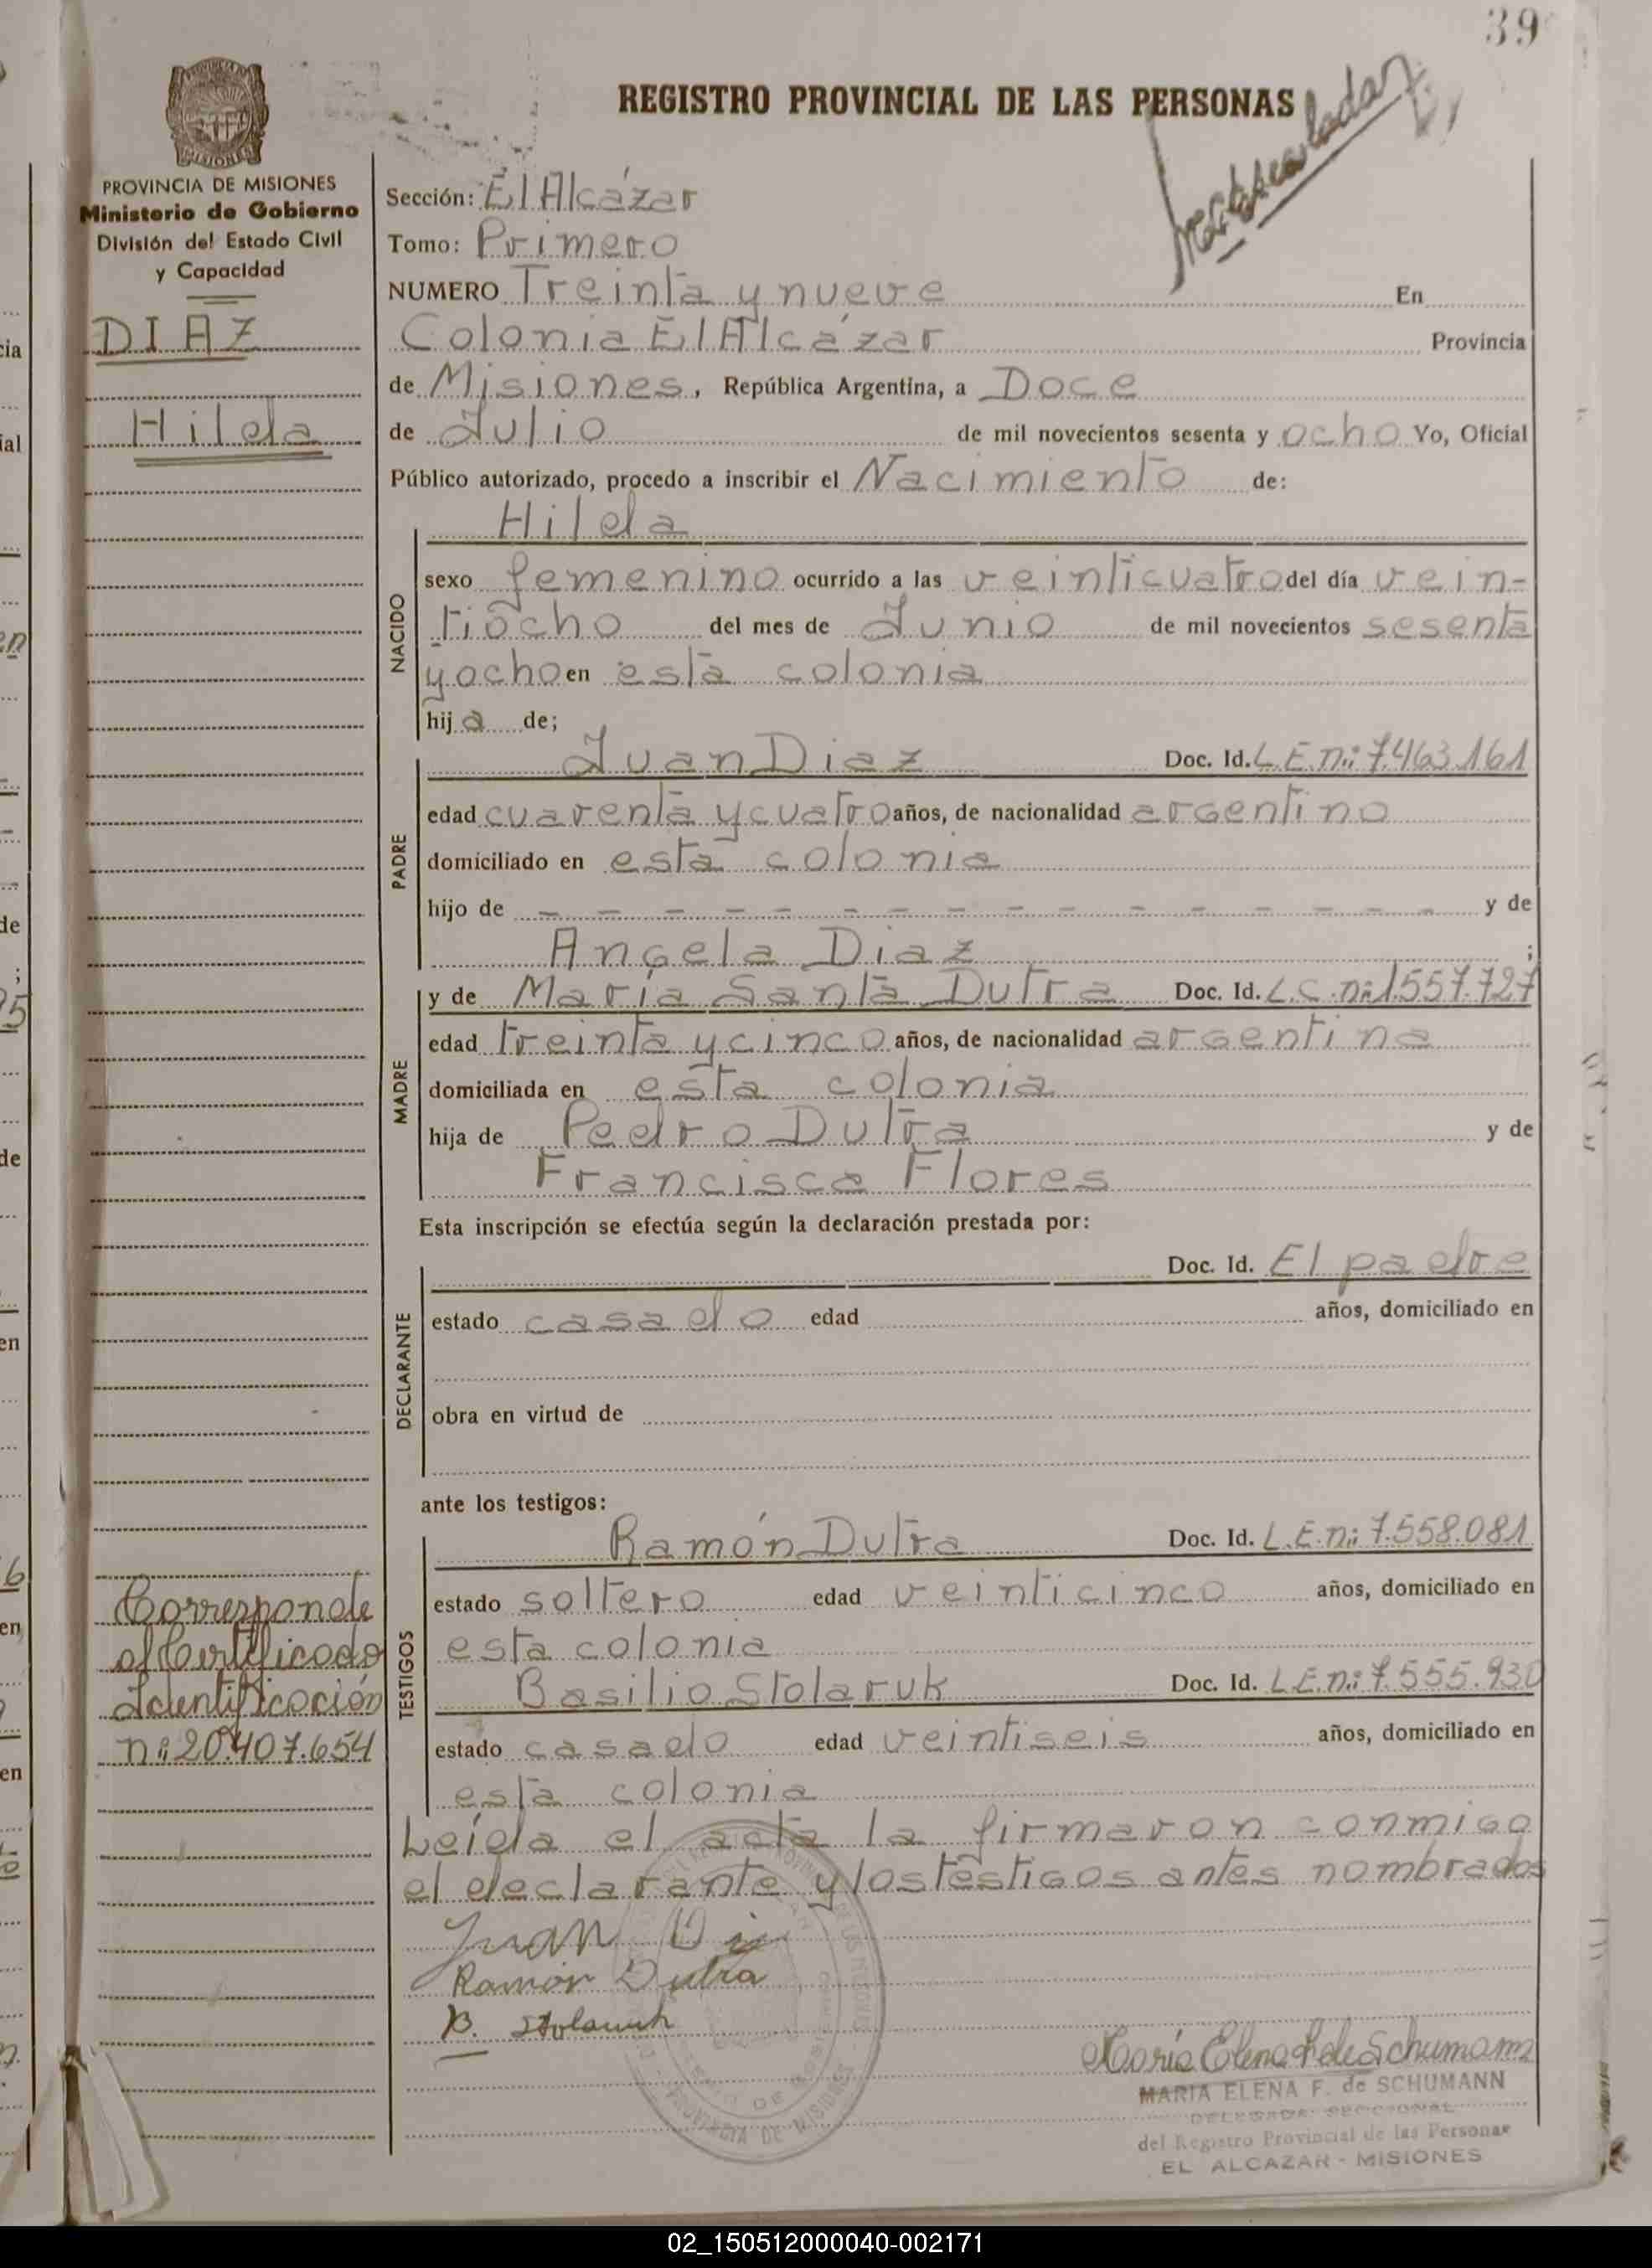 39
REGISTRO PROVINCIAL DE LAS PERSONAS
PROVINCIA DE MISIONES
Ministerio de Gobierno
División del Estado Civil
y Capacidad
DIAZ
Hilda
Sección: El Alcázar
Tomo: Primero
NUMERO Treinta y nueve En
Colonia El Alcázar Provincia
de Misiones, República Argentina, a Doce
de Julio de mil novecientos sesenta y ocho Yo, Oficial
Público autorizado, procedo a inscribir el Nacimiento de:
Hilda
NACIDO
sexo femenino ocurrido a las veinticuatro del día vein-
tiocho del mes de Junio de mil novecientos sesenta
y ocho en esta colonia
hija de;
PADRE
Juan Diaz Doc. Id. L.E.nº: 7.463.161
edad cuarenta y cuatro años, de nacionalidad argentino
domiciliado en esta colonia
hijo de - - - - - - - - - - - - - - - - y de
Angela Diaz ;
MADRE
y de María Santa Dutra Doc. Id. L.C.nº 1.557.727
edad treinta y cinco años, de nacionalidad argentina
domiciliada en esta colonia
hija de Pedro Dutra y de
Francisca Flores
Esta inscripción se efectúa según la declaración prestada por:
DECLARANTE
Doc. Id. El padre
estado casado edad años, domiciliado en
obra en virtud de
ante los testigos:
TESTIGOS
Ramón Dutra Doc. Id. L.E.nº: 7.558.081
estado soltero edad veinticinco años, domiciliado en
esta colonia
Basilio Stolaruk Doc. Id. L.E.nº: 7.555.930
estado casado edad veintiseis años, domiciliado en
esta colonia
Corresponde
al Certificado
Identificación
nº 20.407.654
Leída el acta la firmaron conmigo
el declarante y los testigos antes nombrados
Juan Di
Ramón Dutra
B. Stolaruk
María Elena F. de Schumann
MARIA ELENA F. de SCHUMANN
DELEGADA SECCIONAL
del Registro Provincial de las Personas
EL ALCAZAR - MISIONES
PROVINCIA DE MISIONES
02_150512000040-002171